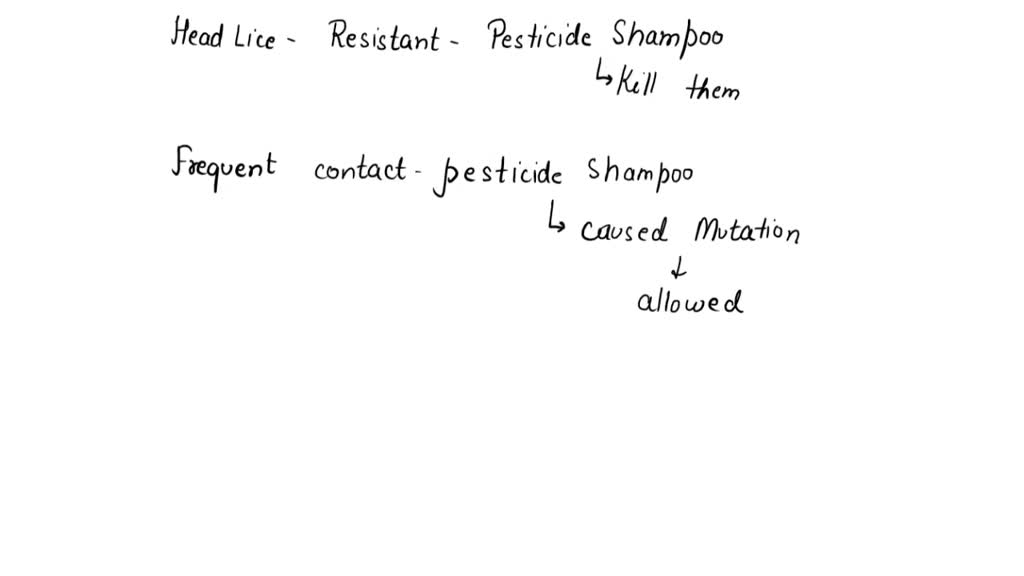 Head Lice - Resistant - Pesticide Shampoo
↳ Kill them
Frequent contact - pesticide shampoo
↳ caused Mutation
↓
allowed